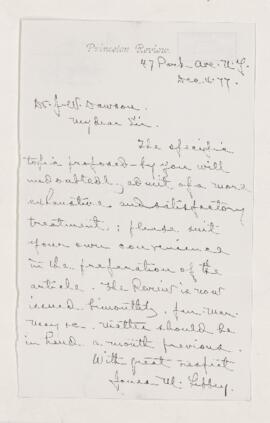 Princeton Review.
47 Park Ave. N.Y.
Dec. 4. 77.
Dr. J. W. Dawson.
My dear Sir.
The specific
topic proposed by you will
undoubtedly admit of a more
exhaustive and satisfactory
treatment; please suit
your own convenience
in the preparation of the
article. The Review is now
issued bimonthly, Jan. Mar.
May &c. Matter should be
in hand a month previous.
With great respect
Jonas M. Libbey.